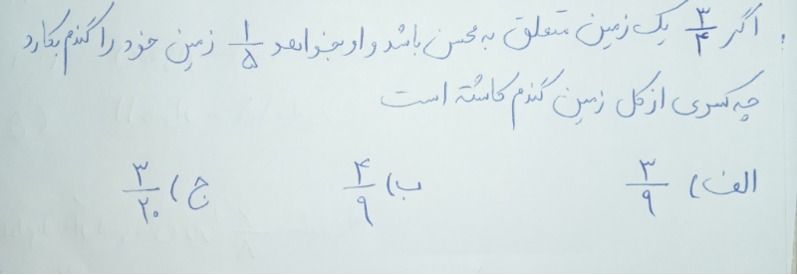 اگر ۳/۴ یک زمین متعلق به محسن باشد و او بخواهد ۱/۵ زمین خود را گندم بکارد
چه کسری از کل زمین گندم کاشته است
الف) ۳/۹ ب) ۴/۹ ج) ۳/۲۰